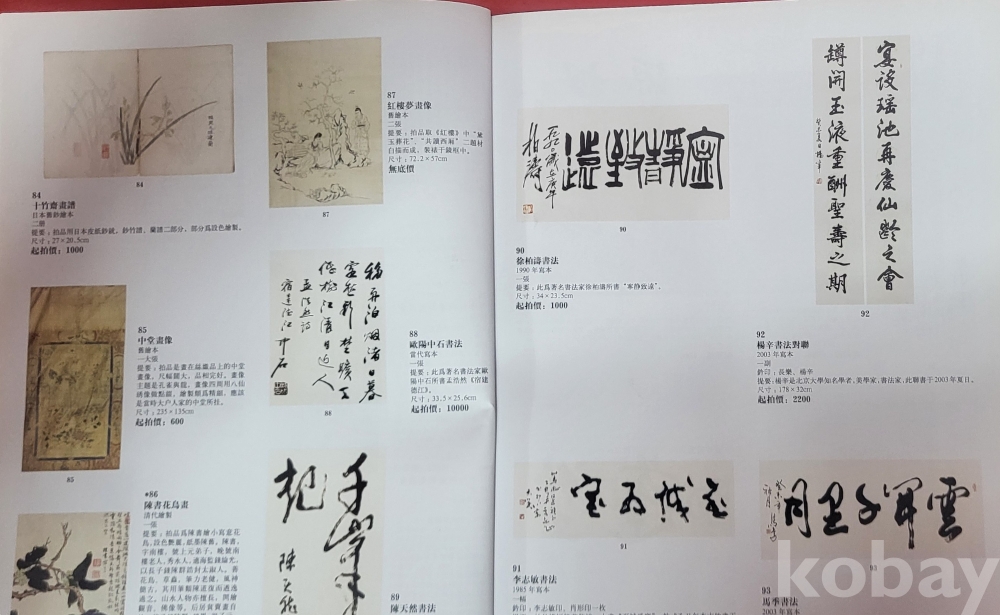 84
84
十竹齋畫譜
日本舊鈔繪本
二冊
提要：拍品用日本皮紙鈔就，鈔竹譜、蘭譜二部分，部分爲設色繪製。
尺寸：27×20.5cm
起拍價：1000
87
87
紅樓夢畫像
舊繪本
二張
提要：拍品取《紅樓夢》中“黛
玉葬花”、“共讀西廂”二題材
白描而成，裝裱于鏡框中。
尺寸：72.2×57cm
無底價
85
85
中堂畫像
舊繪本
一大張
提要：拍品是畫在絲織品上的中堂
畫像，尺幅闊大，品相完好。畫像
主題是孔雀與龍，畫像四周用八仙
諸像做點綴，繪製頗爲精細，應該
是當時大户人家的中堂所挂。
尺寸：235×135cm
起拍價：600
移舟泊烟渚日暮
客愁新野曠天
低樹江清月近人
孟浩然詩
宿建德江 中石
88
88
歐陽中石書法
當代寫本
一張
提要：此爲著名書法家歐
陽中石所書孟浩然《宿建
德江》。
尺寸：33.5×25.6cm
起拍價：10000
*86
陳書花鳥畫
清代繪製
一張
提要：拍品爲陳書繪小寫意花
鳥，設色艷麗，紙墨陳舊。陳書，
字南樓，號上元弟子，晚號南
樓老人，秀水人，
花鳥、草蟲，筆力老健，風神
簡古，其用筆類陳道復而遒逸
過之。山水人物亦擅長，間繪
觀音、佛像等。
陳天然
89
陳天然書法
寧靜致遠
柏濤
90
90
徐柏濤書法
1990 年寫本
一張
提要：此爲著名書法家徐柏濤所書“寧静致遠”。
尺寸：34×23.5cm
起拍價：1000
宴設瑶池再慶仙齡之會
罇開玉液重酬聖壽之期
92
92
楊辛書法對聯
2003 年寫本
一副
鈐印：長樂、楊辛
提要：楊辛是北京大學知名學者、美學家、書法家，此聯書于2003年夏日。
尺寸：178×32cm
起拍價：2200
91
91
李志敏書法
1985 年寫本
一張
鈐印：李志敏印、肖形印一枚
雲開千里月
93
93
馬季書法
2003 年寫本
kobay